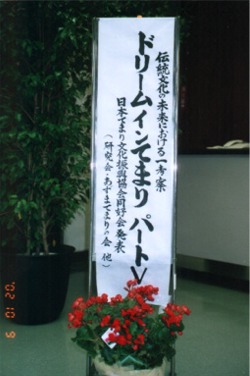 伝統文化の未来における一考案
ドリームインてまり パートⅤ
日本てまり文化振興協会同好会発表
(研究会・あすまてまりの会 他)
9 10 '02